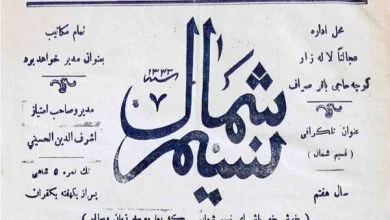 محل اداره
عجالتاً لاله زار
کوچه حاجی باقر صراف
عنوان تلگرافی
( نسیم شمال )
سال هفتم
سنه ۱۳۳۳
۷
نسیم شمال
تمام مکاتیب
بعنوان مدیر خواهد بود
مدیر و صاحب امتیاز
اشرف الدین الحسینی
تك نمره ۵ شاهی
پس از یکهفته یکقران